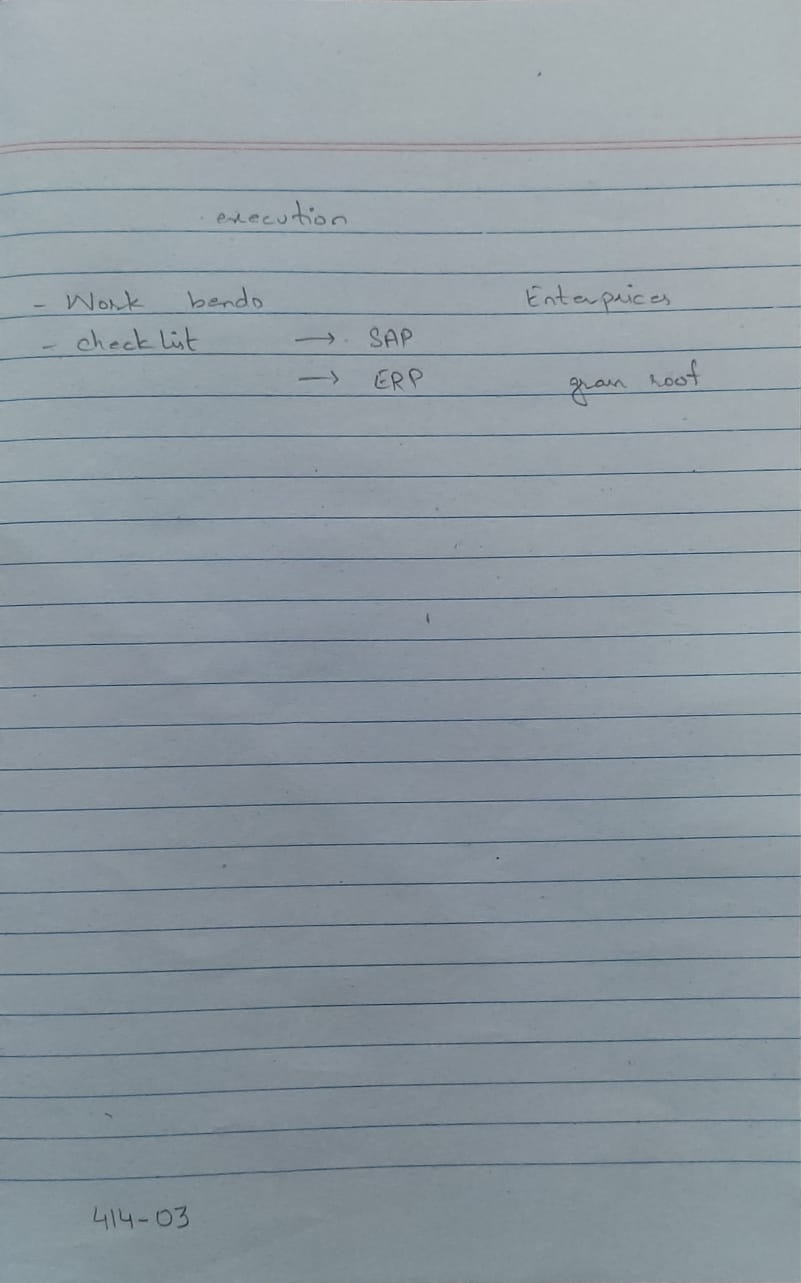 execution
- Work bendo Enterprices
- checklist → SAP
→ ERP gran root
414-03